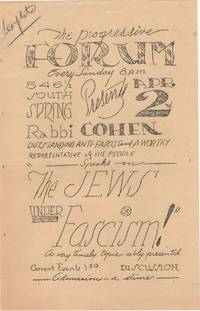 Complete
The Progressive
FORUM
Every Sunday 8pm
546½
SOUTH
SPRING
Presents
APR.
2nd
Rabbi COHEN
OUTSTANDING ANTI-FASCIST and A WORTHY
REPRESENTATIVE of HIS PEOPLE
Speaks on
"The JEWS
UNDER
Fascism!"
A very timely topic ably presented
Current Events 7:30 DISCUSSION
Admission - a dime